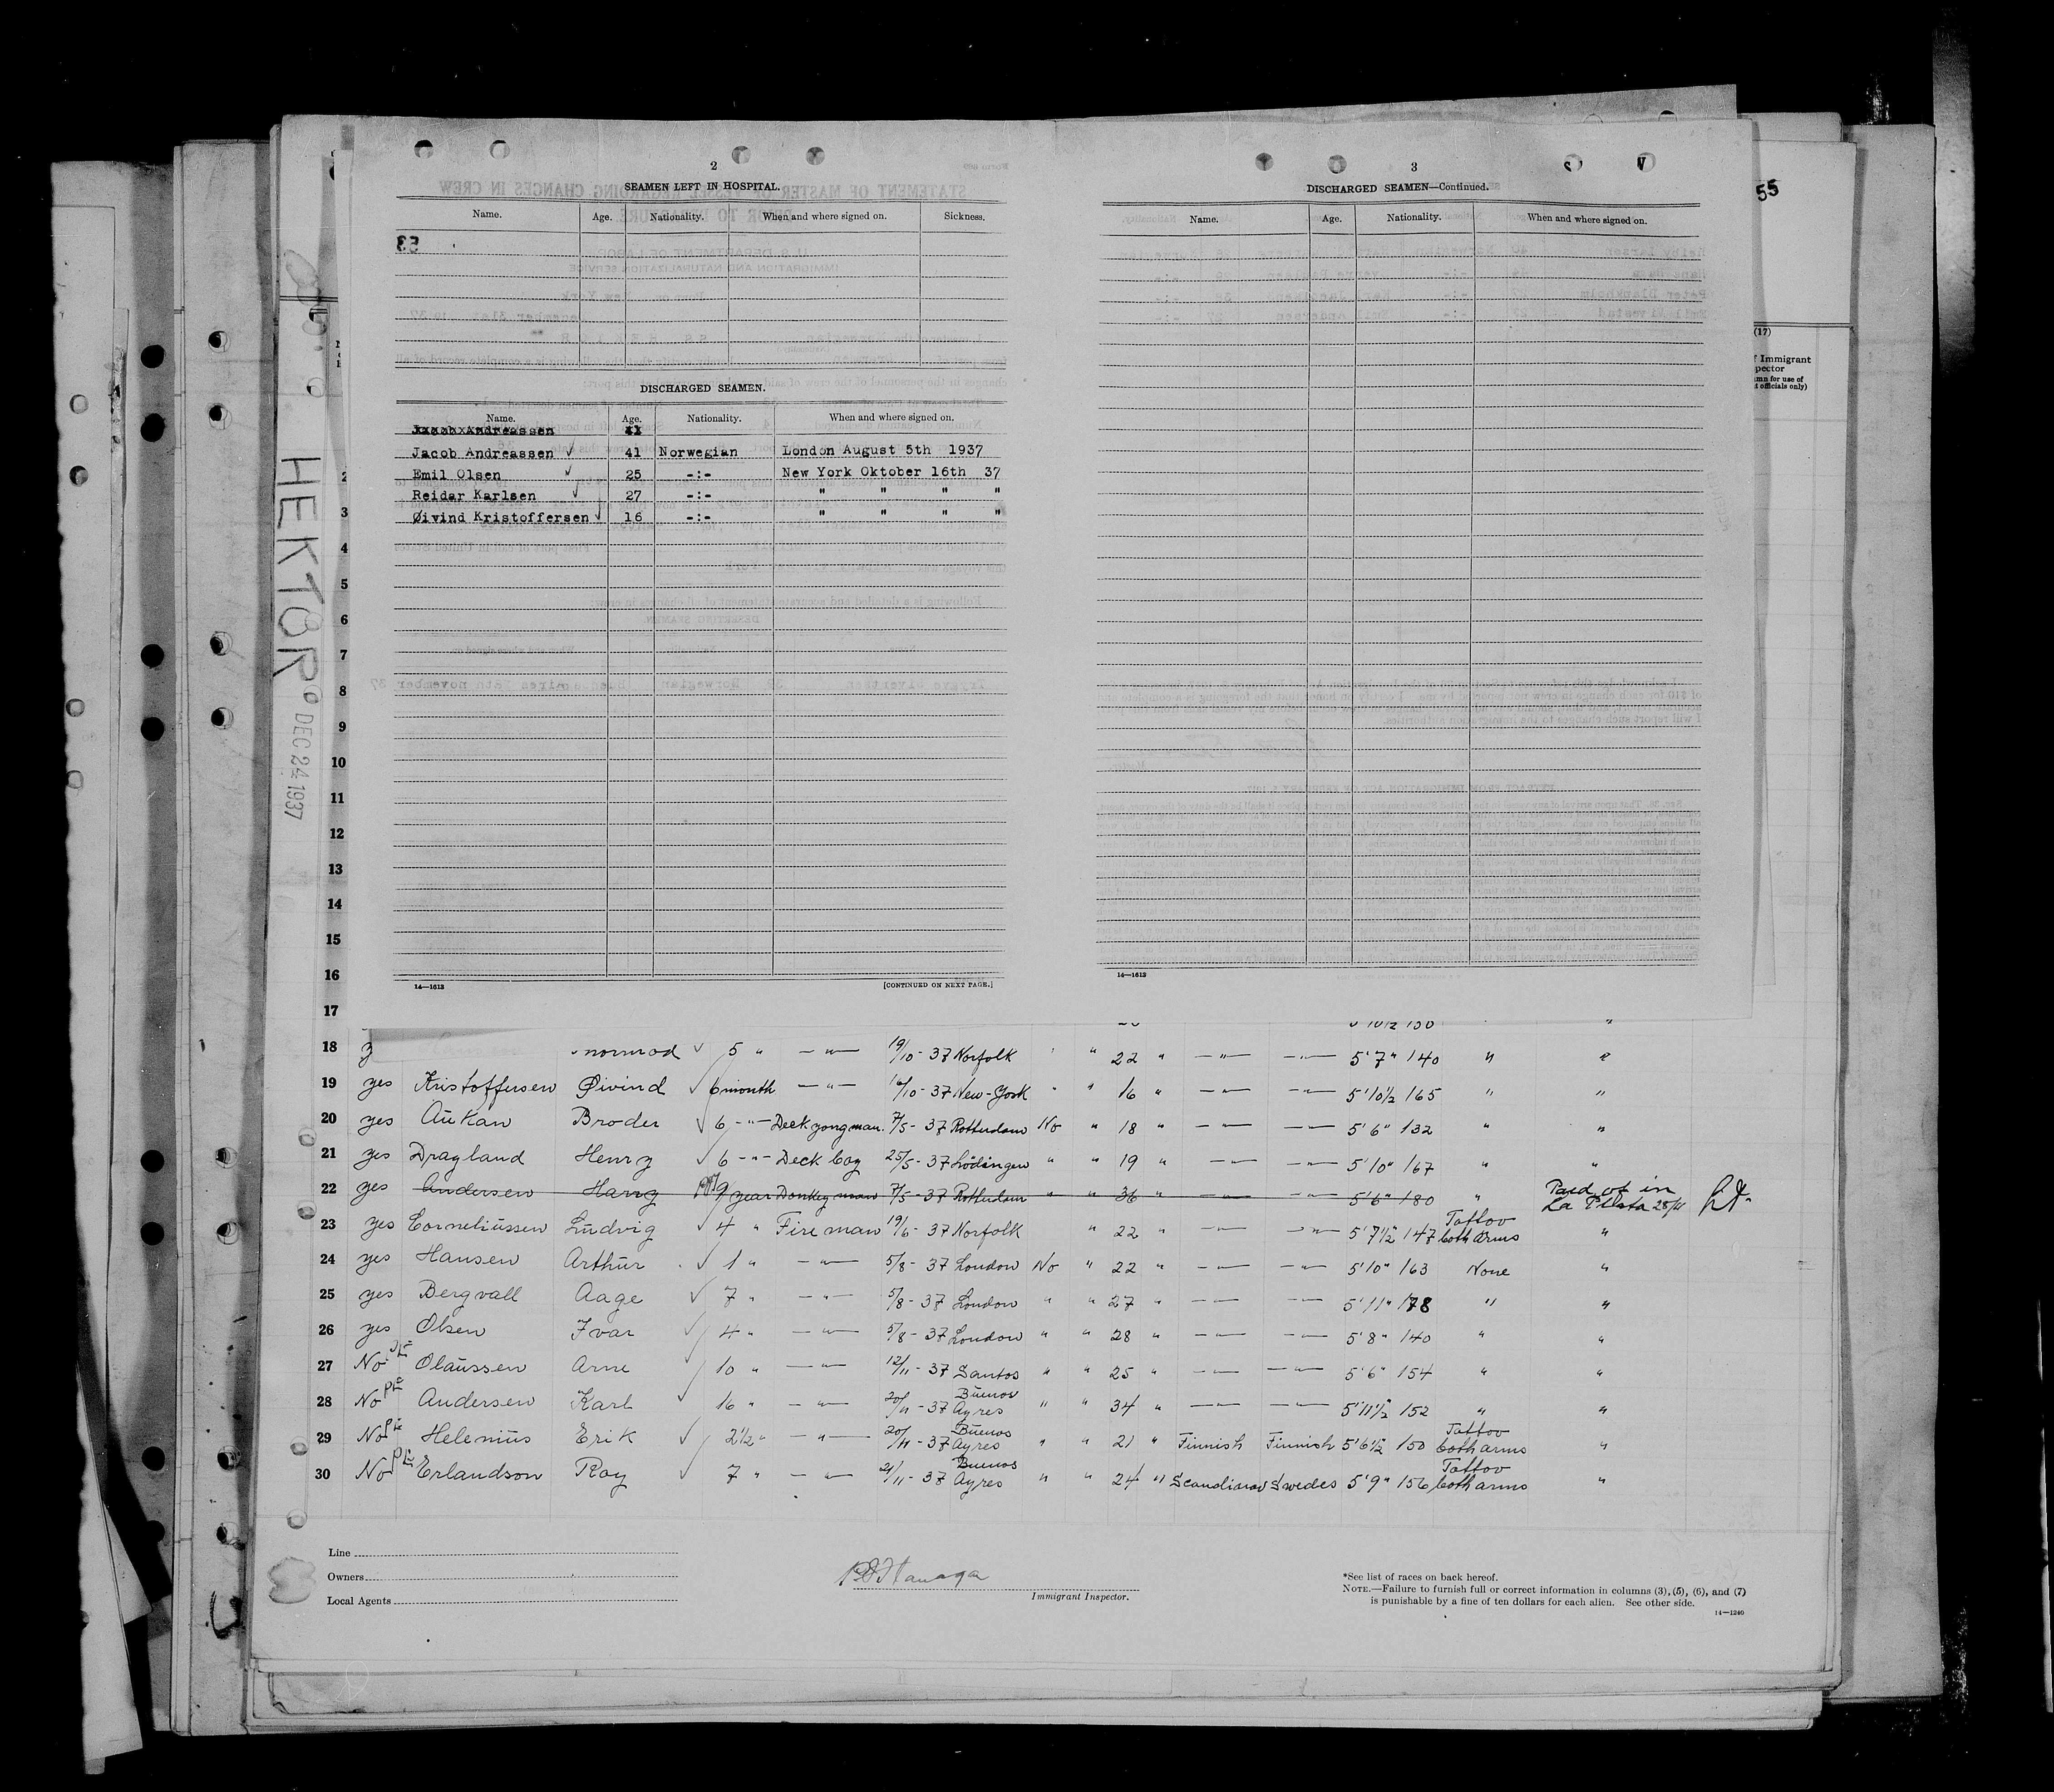 2
SEAMEN LEFT IN HOSPITAL.
Name. Age. Nationality. When and where signed on. Sickness.
53
DISCHARGED SEAMEN.
Name. Age. Nationality. When and where signed on.
Jacob Andreassen 41
Jacob Andreassen 41 Norwegian London August 5th 1937
Emil Olsen 25 -:- New York Oktober 16th 37
Reidar Karlsen 27 -:- " " " "
Øivind Kristoffersen 16 -:- " " " "
14—1613 [CONTINUED ON NEXT PAGE.]
3
DISCHARGED SEAMEN—Continued.
Name. Age. Nationality. When and where signed on.
14—1613
55
(17)
Immigrant
pector
mn for use of
t officials only)
HEKTOR
DEC 24 1937
2
3
4
5
6
7
8
9
10
11
12
13
14
15
16
17
18 5 " —"— 19/10-37 Norfolk " 22 " —"— —"— 5'7" 140 " "
19 yes Kristoffersen Øivind 6 month —"— 16/10-37 New-York " " 16 " —"— —"— 5'10½ 165 " "
20 yes Aukan Broder 6 —"— Deck yongman. 7/5-37 Rotterdam No " 18 " —"— —"— 5'6" 132 " "
21 yes Dragland Henry 6 —"— Deck boy 25/5-37 Lödingen " " 19 " —"— —"— 5'10" 167 " "
22 yes Andersen Harry 9 year Donkey man 7/5-37 Rotterdam " " 36 " —"— —"— 5'6" 180 " Paid of in La Plata 28/11
23 yes Corneliussen Ludvig 4 " Fire man 19/6-37 Norfolk " 22 " —"— —"— 5'7½ 147 Tattov both arms "
24 yes Hansen Arthur 1 " —"— 5/8-37 London No " 22 " —"— —"— 5'10" 163 None "
25 yes Bergvall Aage 7 " —"— 5/8-37 London " " 27 " —"— —"— 5'11" 178 " "
26 yes Olsen Ivar 4 " —"— 5/8-37 London " " 28 " —"— —"— 5'8" 140 " "
27 No Olaussen Arne 10 " —"— 12/11-37 Santos " " 25 " —"— —"— 5'6" 154 " "
28 No Andersen Karl 16 " —"— 20/11-37 Buenos Ayres " " 34 " —"— —"— 5'11½ 152 " "
29 No Helenius Erik 2½ " —"— 20/11-37 Buenos Ayres " " 21 " Finnish Finnish 5'6½ 150 Tattov both arms "
30 No Erlandson Roy 7 " —"— 21/11-37 Buenos Ayres " " 24 " Scandinav Swedes 5'9" 156 Tattov both arms "
Line
Owners
Local Agents
Immigrant Inspector.
*See list of races on back hereof.
NOTE.—Failure to furnish full or correct information in columns (3), (5), (6), and (7)
is punishable by a fine of ten dollars for each alien. See other side.
14—1240